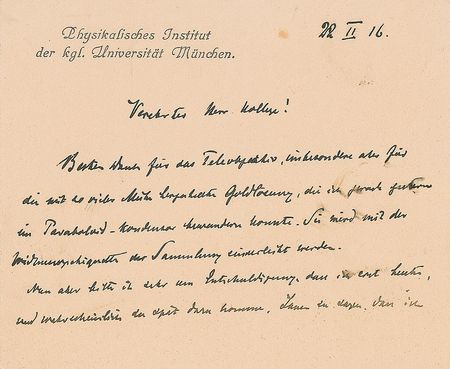 Physikalisches Institut
der kgl. Universität München.
22 II 16.
Verehrter Herr Kollege!
Besten Dank für das Teleobjektiv, insbesondere aber für
die mit so vieler Mühe hergestellte Goldlösung, die ich gestern
im Paraboloid-Kondensor bewundern konnte. Sie wird mit der
der Sammlung einverleibt werden.
Nun aber bitte ich sehr um Entschuldigung, dass ich erst heute,
und wahrscheinlich zu spät dazu komme, Ihnen zu sagen, dass ich